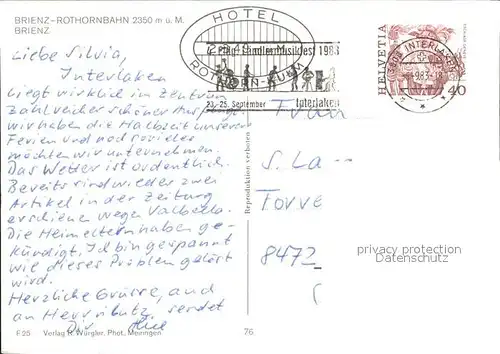 BRIENZ-ROTHORNBAHN 2350 m ü. M.
BRIENZ
HOTEL
ROTHORN-KULM
Ländlermusikfest 1983
23.-25. September Interlaken
INTERLAKEN
HELVETIA
40
Liebe Silvia,
Interlaken
liegt wirklich im Zentrum
zahlreicher schöner
wir haben die Halbzeit unserer
Ferien und noch so vieles
möchten wir unternehmen.
Das Wetter ist ordentlich.
Bereits sind wieder zwei
Artikel in der Zeitung
erschienen wegen Valbella.
Die Heimeltern haben ge-
kündigt. Ich bin gespannt
wie dieses Problem gelöst
wird.
Herzliche Grüsse, auch
an Herrn sendet
Frau
S. La
8472
Reproduktion verboten
privacy protection
Datenschutz
F 25 Verlag R. Würgler, Phot., Meiringen
76